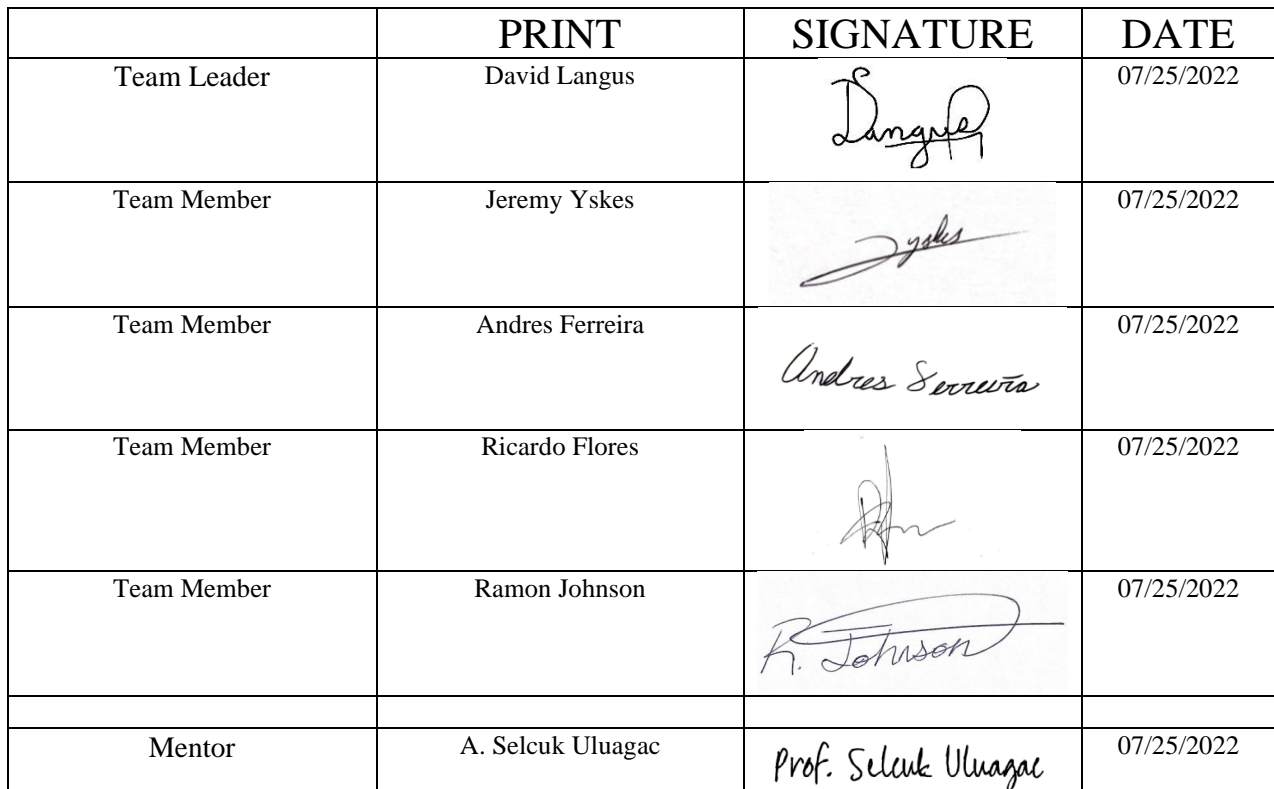 PRINT SIGNATURE DATE
Team Leader David Langus Langus 07/25/2022
Team Member Jeremy Yskes Jyskes 07/25/2022
Team Member Andres Ferreira Andres Ferreira 07/25/2022
Team Member Ricardo Flores 07/25/2022
Team Member Ramon Johnson R. Johnson 07/25/2022
Mentor A. Selcuk Uluagac Prof. Selcuk Uluagac 07/25/2022